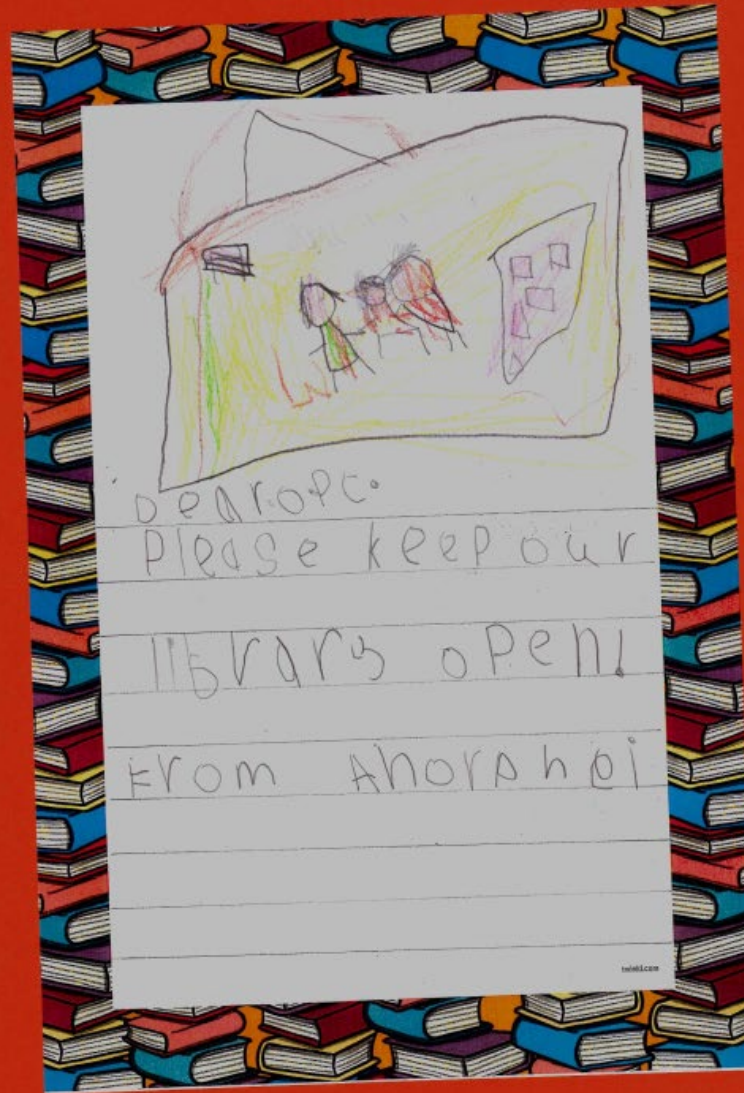 Dear OPC.
Please keep our
library open!
From Ahorphei
twinkl.com